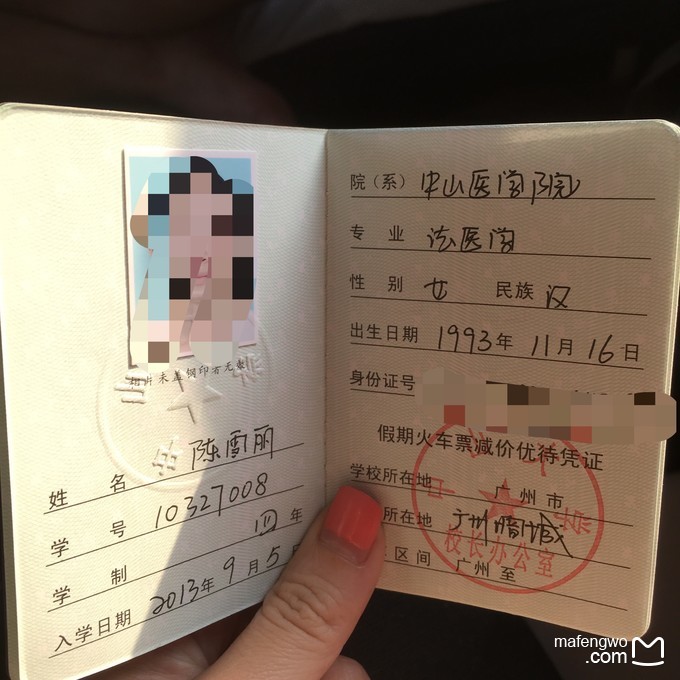 照片未盖钢印者无效
姓名 陈雪丽
学号 10327008
学制 四年
入学日期 2013年9月5日
院（系） 中山医学院
专业 法医学
性别 女 民族 汉
出生日期 1993年11月16日
身份证号
假期火车票减价优待凭证
学校所在地 广州市
所在地 广州
区间 广州至
校长办公室
mafengwo
.com